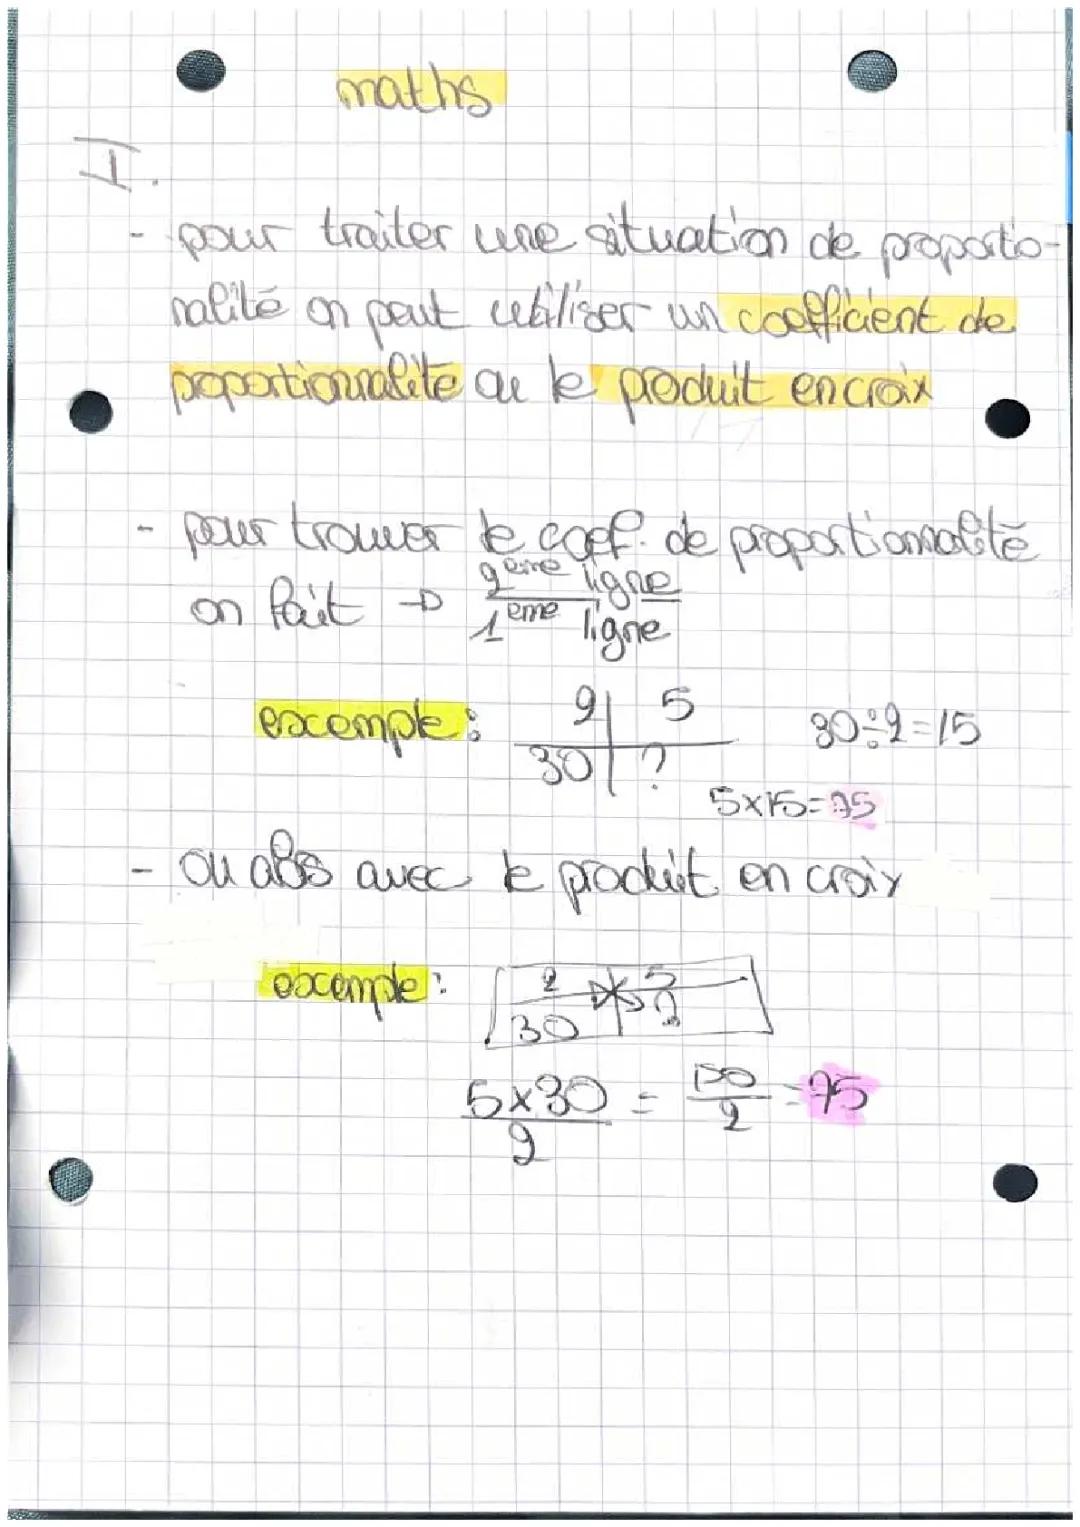 maths
I.
- pour traiter une situation de proportio-
nalité on peut utiliser un coefficient de
proportionnalité ou le produit en croix
- pour trouver le coef. de proportionnalité
on fait → 2ème ligne
1ème ligne
exemple : 2 5 30÷2=15
30 ?
5×15=75
- ou alos avec le produit en croix
exemple : 2 5
30 ?
5×30 = 150 = 75
2 2